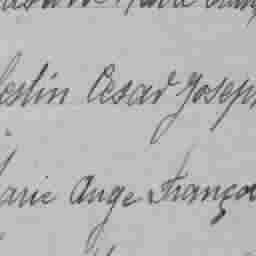 estin Cesar Joseph
arie Ange Françoi